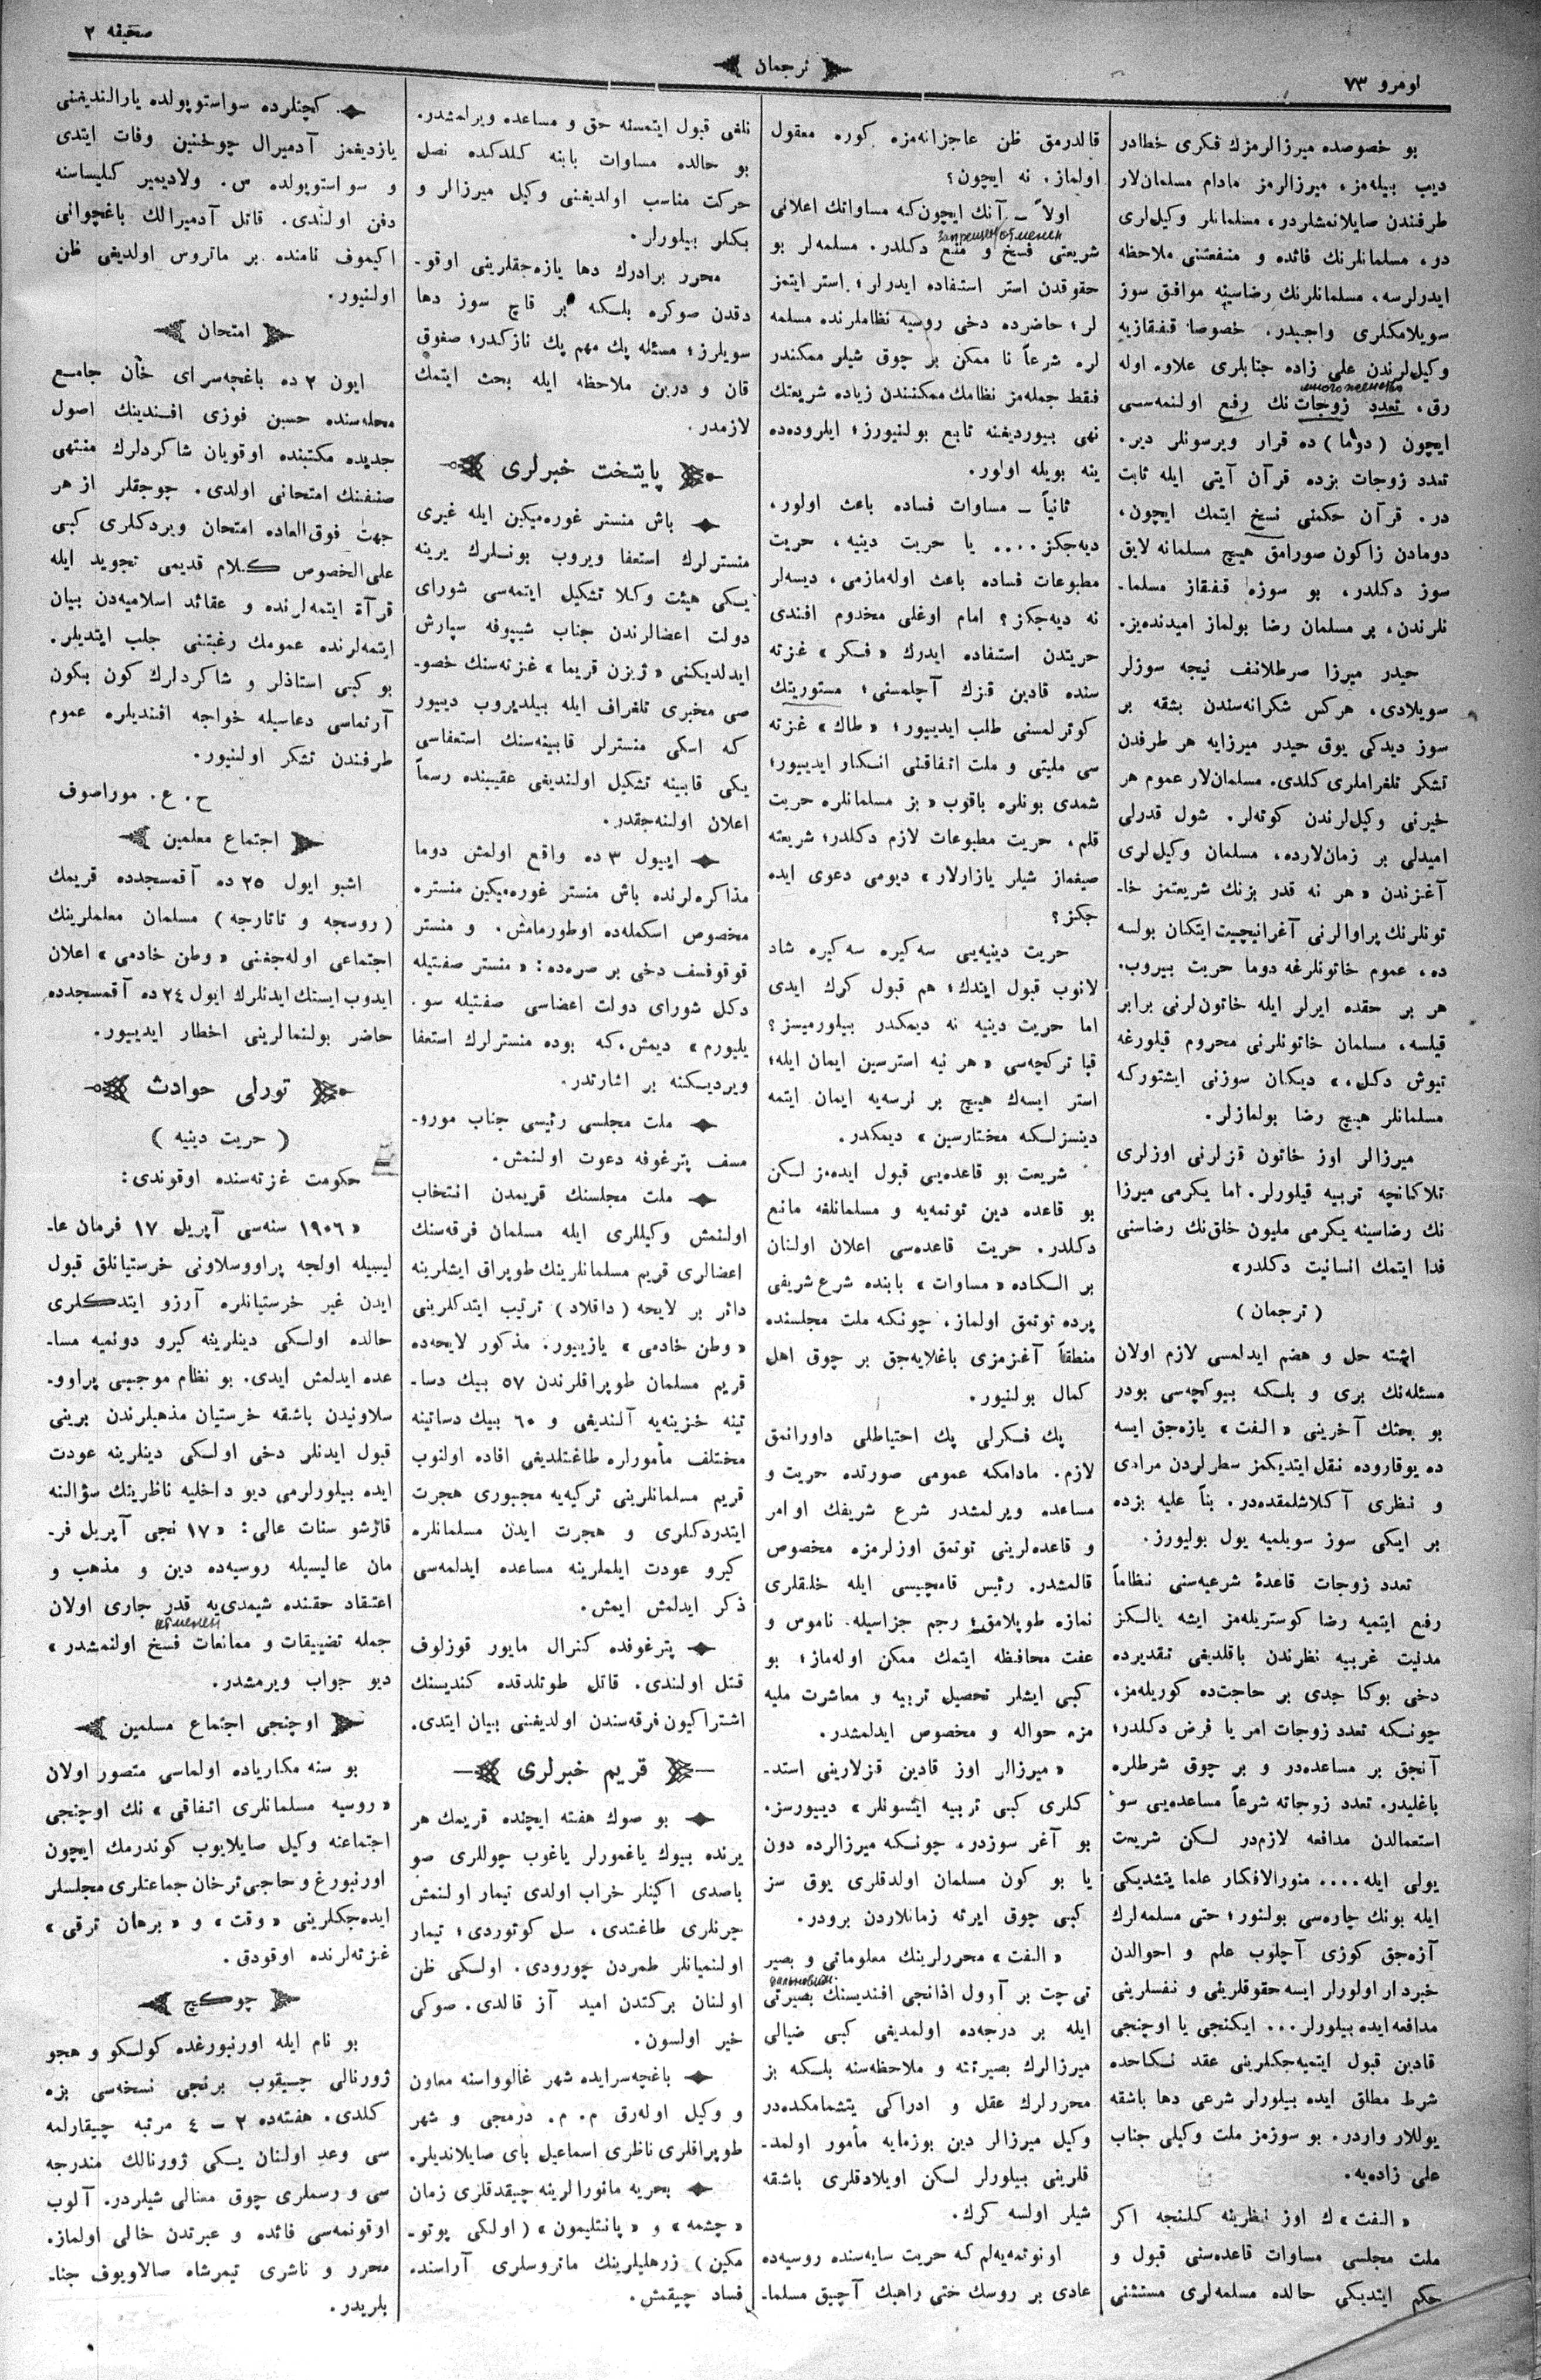 نومرو ٧٣
ترجمان
صحيفه ٢
بو خصوصده ميرزالرمزك فكرى خطادر
ديب بيله‌مز، ميرزالرمز مادام مسلمان‌لار
طرفندن صايلانمشلردر، مسلمانلر وكيل‌لرى
در، مسلمانلرنك فائده و منفعتنى ملاحظه
ايدرلرسه، مسلمانلرنك رضاسينه موافق سوز
سويلامكلرى واجبدر. خصوصا قفقازيه
وكيل‌لرندن على زاده جنابلرى علاوه اوله
многоженство
رق، تعدد زوجات نك رفع اولنمه‌سى
ايچون (دوما) ده قرار ويرسونلر دير.
تعدد زوجات بزده قرآن آيتى ايله ثابت
در. قرآن حكمنى نسخ ايتمك ايچون،
دومادن زاكون صورامق هيچ مسلمانه لايق
سوز دكلدر، بو سوزه قفقاز مسلما-
نلرندن، بر مسلمان رضا بولماز اميدنده‌يز.
حيدر ميرزا صرطلانف نيجه سوزلر
سويلادى، هركس شكرانه‌سندن بشقه بر
سوز ديدكى يوق حيدر ميرزايه هر طرفدن
تشكر تلغراملرى كلدى. مسلمان‌لار عموم هر
خيرنى وكيل‌لرندن كوته‌لر. شول قدرلى
اميدلى بر زمان‌لارده، مسلمان وكيل‌لرى
آغزندن «هر نه قدر بزنك شريعتمز خا-
تونلرنك پراوالرنى آغرانيچيت ايتكان بولسه
ده، عموم خاتونلرغه دوما حريت بيروب.
هر بر حقده ايرلر ايله خاتون‌لرنى برابر
قيلسه، مسلمان خاتونلرنى محروم قيلورغه
تيوش دكل،» ديكان سوزنى ايشتوركه
مسلمانلر هيچ رضا بولمازلر.
ميرزالر اوز خاتون قزلرنى اوزلرى
تلاكانچه تربيه قيلورلر. اما يكرمى ميرزا
نك رضاسينه يكرمى مليون خلق‌نك رضاسنى
فدا ايتمك انسانيت دكلدر»
(ترجمان)
اشته حل و هضم ايدلمسى لازم اولان
مسئله‌نك برى و بلكه بيوكچه‌سى بودر
بو بحثك آخرينى «الفت» يازه‌جق ايسه
ده يوقاروده نقل ايتديكمز سطرلردن مرادى
و نظرى آكلاشلمقده‌در. بناً عليه بزده
بر ايكى سوز سويلميه يول بوليورز.
تعدد زوجات قاعدهٔ شرعيه‌سنى نظاماً
رفع ايتميه رضا كوستريله‌مز ايشه يالكز
مدنيت غربيه نظرندن باقلديغى تقديرده
دخى بوكا جدى بر حاجت‌ده كوريله‌مز،
چونكه تعدد زوجات امر يا فرض دكلدر؛
آنجق بر مساعده‌در و بر چوق شرطلره
باغليدر. تعدد زوجاته شرعاً مساعده‌يى سو
استعمالدن مدافعه لازم‌در لكن شريعت
يولى ايله.... منورالافكار علما يتشديكى
ايله بونك چاره‌سى بولنور؛ حتى مسلمه‌لرك
آزه‌جق كوزى آچلوب علم و احوالدن
خبردار اولورلر ايسه حقوقلرينى و نفسلرينى
مدافعه ايده بيلورلر... ايكنجى يا اوچنجى
قادين قبول ايتميه‌جكلرينى عقد نكاحده
شرط مطلق ايده بيلورلر شرعى دها باشقه
يوللار واردر. بو سوزمز ملت وكيلى جناب
على زاده‌يه.
«الفت»ك اوز نظرينه كلنجه اكر
ملت مجلسى مساوات قاعده‌سنى قبول و
حكم ايتديكى حالده مسلمه‌لرى مستثنى
قالدرمق ظن عاجزانه‌مزه كوره معقول
اولماز. نه ايچون؟
اولاً ــ آنك ايچون‌كه مساواتك اعلانى
запрещен/отменен
شريعتى فسخ و منع دكلدر. مسلمه‌لر بو
حقوقدن استر استفاده ايدرلر؛ استر ايتمز
لر؛ حاضرده دخى روسيه نظاملرنده مسلمه
لره شرعاً نا ممكن بر چوق شيلر ممكندر
فقط جمله‌مز نظامك ممكنندن زياده شريعتك
نهى بيورديغنه تابع بولنيورز؛ ايلروده‌ده
ينه بويله اولور.
ثانياً ــ مساوات فساده باعث اولور،
ديه‌جكز.... يا حريت دينيه، حريت
مطبوعات فساده باعث اوله‌مازمى، ديسه‌لر
نه ديه‌جكز؟ امام اوغلى مخدوم افندى
حريتدن استفاده ايدرك «فكر» غزته
سنده قادين قزك آچلمسنى؛ مستوريتك
كوترلمسنى طلب ايدييور؛ «طاك» غزته
سى مليتى و ملت اتفاقنى انكار ايدييور؛
شمدى بونلره باقوب «بز مسلمانلره حريت
قلم، حريت مطبوعات لازم دكلدر؛ شريعته
صيغماز شيلر يازارلار» ديومى دعوى ايده
جكز؟
حريت دينيه‌يى سه‌كيره سه‌كيره شاد
لانوب قبول ايتدك؛ هم قبول كرك ايدى
اما حريت دينيه نه ديمكدر بيلورميسز؟
قبا تركچه‌سى «هر نيه استرسين ايمان ايله؛
استر ايسه‌ك هيچ بر نرسه‌يه ايمان ايتمه
دينسزلكه مختارسين» ديمكدر.
شريعت بو قاعده‌يى قبول ايده‌مز لكن
بو قاعده دين توتمه‌يه و مسلمانلغه مانع
دكلدر. حريت قاعده‌سى اعلان اولنان
بر الكاده «مساوات» بابنده شرع شريفى
پرده توتمق اولماز، چونكه ملت مجلسنده
منطقاً آغزمزى باغلايه‌جق بر چوق اهل
كمال بولنيور.
پك فكرلى پك احتياطلى داورانمق
لازم. مادامكه عمومى صورتده حريت و
مساعده ويرلمشدر شرع شريفك اوامر
و قاعده‌لرينى توتمق اوزلرمزه مخصوص
قالمشدر. رئيس قامچيسى ايله خلقلرى
نمازه طوپلامق؛ رجم جزاسيله ناموس و
عفت محافظه ايتمك ممكن اوله‌ماز؛ بو
كبى ايشلر تحصيل تربيه و معاشرت مليه
مزه حواله و مخصوص ايدلمشدر.
«ميرزالر اوز قادين قزلارينى استد-
كلرى كبى تربيه ايتسونلر» دييورسز.
بو آغر سوزدر، چونكه ميرزالرده دون
يا بو كون مسلمان اولدقلرى يوق سز
كبى چوق ايرته زمانلاردن برودر.
«الفت» محررلرينك معلوماتى و بصير
تى چت بر آوول اذانجى افنديسنك بصيرتى
ايله بر درجه‌ده اولمديغى كبى ضيالى
ميرزالرك بصيرتنه و ملاحظه‌سنه بلكه بز
محررلرك عقل و ادراكى يتشمامكده‌در
وكيل ميرزالر دين بوزمايه مأمور اولمد-
قلرينى بيلورلر لكن اويلادقلرى باشقه
شيلر اولسه كرك.
اونوتمه‌يه‌لم كه حريت سايه‌سنده روسيه‌ده
عادى بر روسك حتى راهبك آچيق مسلما-
نلغى قبول ايتمسنه حق و مساعده ويرلمشدر.
بو حالده مساوات بابنه كلدكده نصل
حركت مناسب اولديغنى وكيل ميرزالر و
بكلر بيلورلر.
محرر برادرك دها يازه‌جقلرينى اوقو-
دقدن صوكره بلكه بر قاچ سوز دها
سويلرز؛ مسئله پك مهم پك نازكدر؛ صغوق
قان و درين ملاحظه ايله بحث ايتمك
لازمدر.
پايتخت خبرلرى
باش منستر غوره‌ميكين ايله غيرى
منسترلرك استعفا ويروب بونلرك يرينه
يكى هيئت وكلا تشكيل ايتمه‌سى شوراى
دولت اعضالرندن جناب شيپوفه سپارش
ايدلديكنى «ژيزن قريما» غزته‌سنك خصو-
صى مخبرى تلغراف ايله بيلديروب دييور
كه اسكى منسترلر قابينه‌سنك استعفاسى
يكى قابينه تشكيل اولنديغى عقيبنده رسماً
اعلان اولنه‌جقدر.
ايبيول ٣ ده واقع اولمش دوما
مذاكره‌لرنده باش منستر غوره‌ميكين منستره
مخصوص اسكمله‌ده اوطورمامش. و منستر
قوقوفسف دخى بر صره‌ده: «منستر صفتيله
دكل شوراى دولت اعضاسى صفتيله سو.
يليورم» ديمش،كه بوده منسترلرك استعفا
ويرديكنه بر اشارتدر.
ملت مجلسى رئيسى جناب مورو-
مسف پترغوفه دعوت اولنمش.
ملت مجلسنك قريمدن انتخاب
اولنمش وكيللرى ايله مسلمان فرقه‌سنك
اعضالرى قريم مسلمانلرينك طوپراق ايشلرينه
دائر بر لايحه (داقلاد) ترتيب ايتدكلرينى
«وطن خادمى» يازييور. مذكور لايحه‌ده
قريم مسلمان طوپراقلرندن ٥٧ بيك دسا-
تينه خزينه‌يه آلنديغى و ٦٠ بيك دساتينه
مختلف مأمورلره طاغتلديغى افاده اولنوب
قريم مسلمانلرينى تركيه‌يه مجبورى هجرت
ايتدردكلرى و هجرت ايدن مسلمانلره
كيرو عودت ايلملرينه مساعده ايدلمه‌سى
ذكر ايدلمش ايمش.
پترغوفده كنرال مايور قوزلوف
قتل اولندى. قاتل طوتلدقده كنديسنك
اشتراكيون فرقه‌سندن اولديغنى بيان ايتدى.
قريم خبرلرى
بو صوك هفته ايچنده قريمك هر
يرنده بيوك ياغمورلر ياغوب چوللرى صو
باصدى اكينلر خراب اولدى تيمار اولنمش
چرنلرى طاغتدى، سل كوتوردى؛ تيمار
اولنميانلر طمردن چورودى. اولكى ظن
اولنان بركتدن اميد آز قالدى. صوكى
خير اولسون.
باغچه‌سرايده شهر غالوواسنه معاون
و وكيل اوله‌رق م. م. درمجى و شهر
طوپراقلرى ناظرى اسماعيل باى صايلانديلر.
بحريه مانورالرينه چيقدقلرى زمان
«چشمه» و «پانتليمون» (اولكى پوتو-
مكين) زرهليلرينك ماتروسلرى آراسنده
فساد چيقمش.
كچنلرده سواستوپولده يارالنديغنى
يازديغمز آدميرال چوخنين وفات ايتدى
و سواستوپولده س. ولاديمير كليساسنه
دفن اولندى. قاتل آدميرالك باغچوانى
اكيموف نامنده بر ماتروس اولديغى ظن
اولنيور.
امتحان
ايون ٢ ده باغچه‌سراى خان جامع
محله‌سنده حسين فوزى افندينك اصول
جديده مكتبنده اوقويان شاكردلرك منتهى
صنفنك امتحانى اولدى. چوجقلر از هر
جهت فوق‌العاده امتحان ويردكلرى كبى
على‌الخصوص كلام قديمى تجويد ايله
قرآة ايتمه‌لرنده و عقائد اسلاميه‌دن بيان
ايتمه‌لرنده عمومك رغبتنى جلب ايتديلر.
بو كبى استاذلر و شاكردلرك كون بكون
آرتماسى دعاسيله خواجه افنديلره عموم
طرفندن تشكر اولنيور.
ح. ع. موراصوف
اجتماع معلمين
اشبو ايول ٢٥ ده آقمسجدده قريمك
(روسجه و تاتارجه) مسلمان معلملرينك
اجتماعى اوله‌جغنى «وطن خادمى» اعلان
ايدوب ايستك ايدنلرك ايول ٢٤ ده آقمسجدده
حاضر بولنمالرينى اخطار ايدييور.
تورلى حوادث
(حريت دينيه)
حكومت غزته‌سنده اوقوندى:
«١٩٠٦ سنه‌سى آپريل ١٧ فرمان عا-
ليسيله اولجه پراووسلاونى خرستيانلق قبول
ايدن غير خرستيانلره آرزو ايتدكلرى
حالده اولكى دينلرينه كيرو دونميه مسا-
عده ايدلمش ايدى. بو نظام موجبى پراوو-
سلاونيدن باشقه خرستيان مذهبلرندن برينى
قبول ايدنلر دخى اولكى دينلرينه عودت
ايده بيلورلرمى ديو داخليه ناظرينك سؤالنه
قارشو سنات عالى: «١٧ نجى آپريل فر-
مان عاليسيله روسيه‌ده دين و مذهب و
اعتقاد حقنده شيمدى‌يه قدر جارى اولان
отменен
جمله تضييقات و ممانعات فسخ اولنمشدر»
ديو جواب ويرمشدر.
اوچنجى اجتماع مسلمين
بو سنه مكارياده اولماسى متصور اولان
«روسيه مسلمانلرى اتفاقى» نك اوچنجى
اجتماعنه وكيل صايلايوب كوندرمك ايچون
اورنبورغ و حاجى ترخان جماعتلرى مجلسلر
ايده‌جكلرينى «وقت» و «برهان ترقى»
غزته‌لرنده اوقودق.
چوكچ
بو نام ايله اورنبورغده كولكو و هجو
ژورنالى چيقوب برنجى نسخه‌سى بزه
كلدى. هفته‌ده ٢ ــ ٤ مرتبه چيقارلمه
سى وعد اولنان يكى ژورنالك مندرجه
سى و رسملرى چوق معنالى شيلردر. آلوب
اوقونمه‌سى فائده و عبرتدن خالى اولماز.
محرر و ناشرى تيمرشاه صالاويوف جنا-
بلريدر.